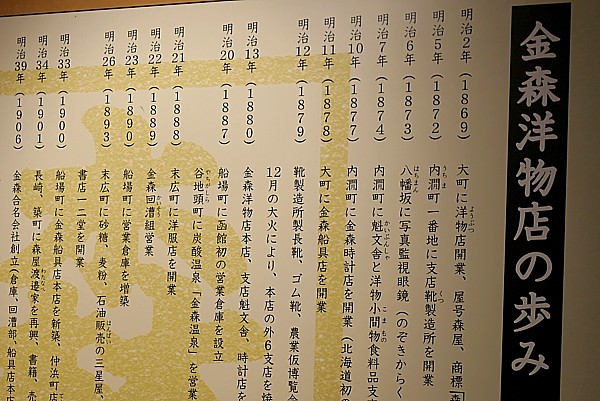 金森洋物店の歩み
明治2年（1869）大町に洋物店開業、屋号森屋、商標「森
明治5年（1872）内澗町一番地に支店靴製造所を開業
明治6年（1873）八幡坂に写真監視眼鏡（のぞきからく
明治7年（1874）内澗町に魁文舎と洋物小間物食料品支
明治10年（1877）内澗町に金森時計店を開業（北海道初の
明治11年（1878）大町に金森船具店を開業
明治12年（1879）靴製造所製長靴、ゴム靴、農業仮博覧会
12月の大火により、本店の外6支店を焼
明治13年（1880）金森洋物店本店、支店魁文舎、時計店を
明治20年（1887）船場町に函館初の営業倉庫を設立
谷地頭町に炭酸温泉「金森温泉」を営業
明治21年（1888）末広町に洋服店を開業
明治22年（1889）金森回漕組営業
明治23年（1890）船場町に営業倉庫を増築
明治26年（1893）末広町に砂糖、麦粉、石油販売の三星屋、
書店一二堂を開業
明治33年（1900）船場町に金森船具店本店を新築、仲浜町
明治34年（1901）長崎、築町に森屋渡邉家を再興、書籍、売
明治39年（1906）金森合名会社創立（倉庫、回漕部、船具店本店